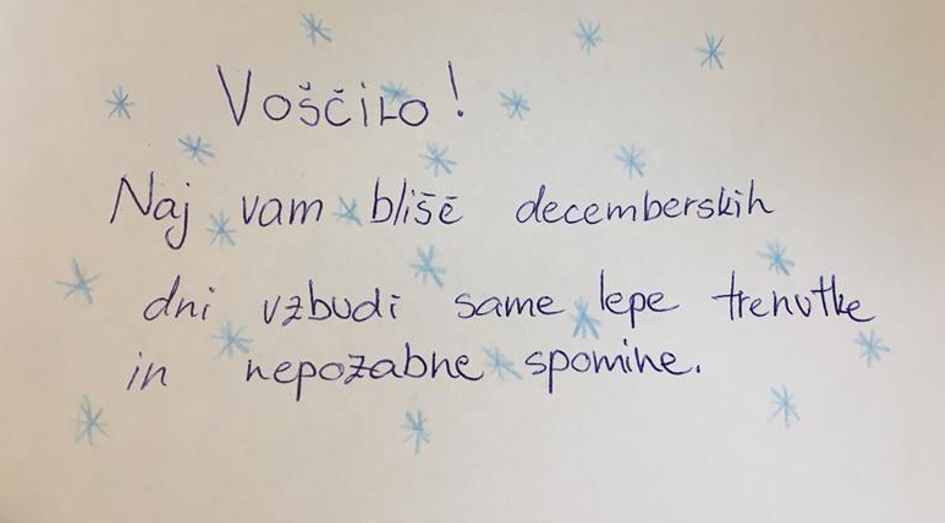 Voščilo!
Naj vam blišč decemberskih
dni vzbudi same lepe trenutke
in nepozabne spomine.